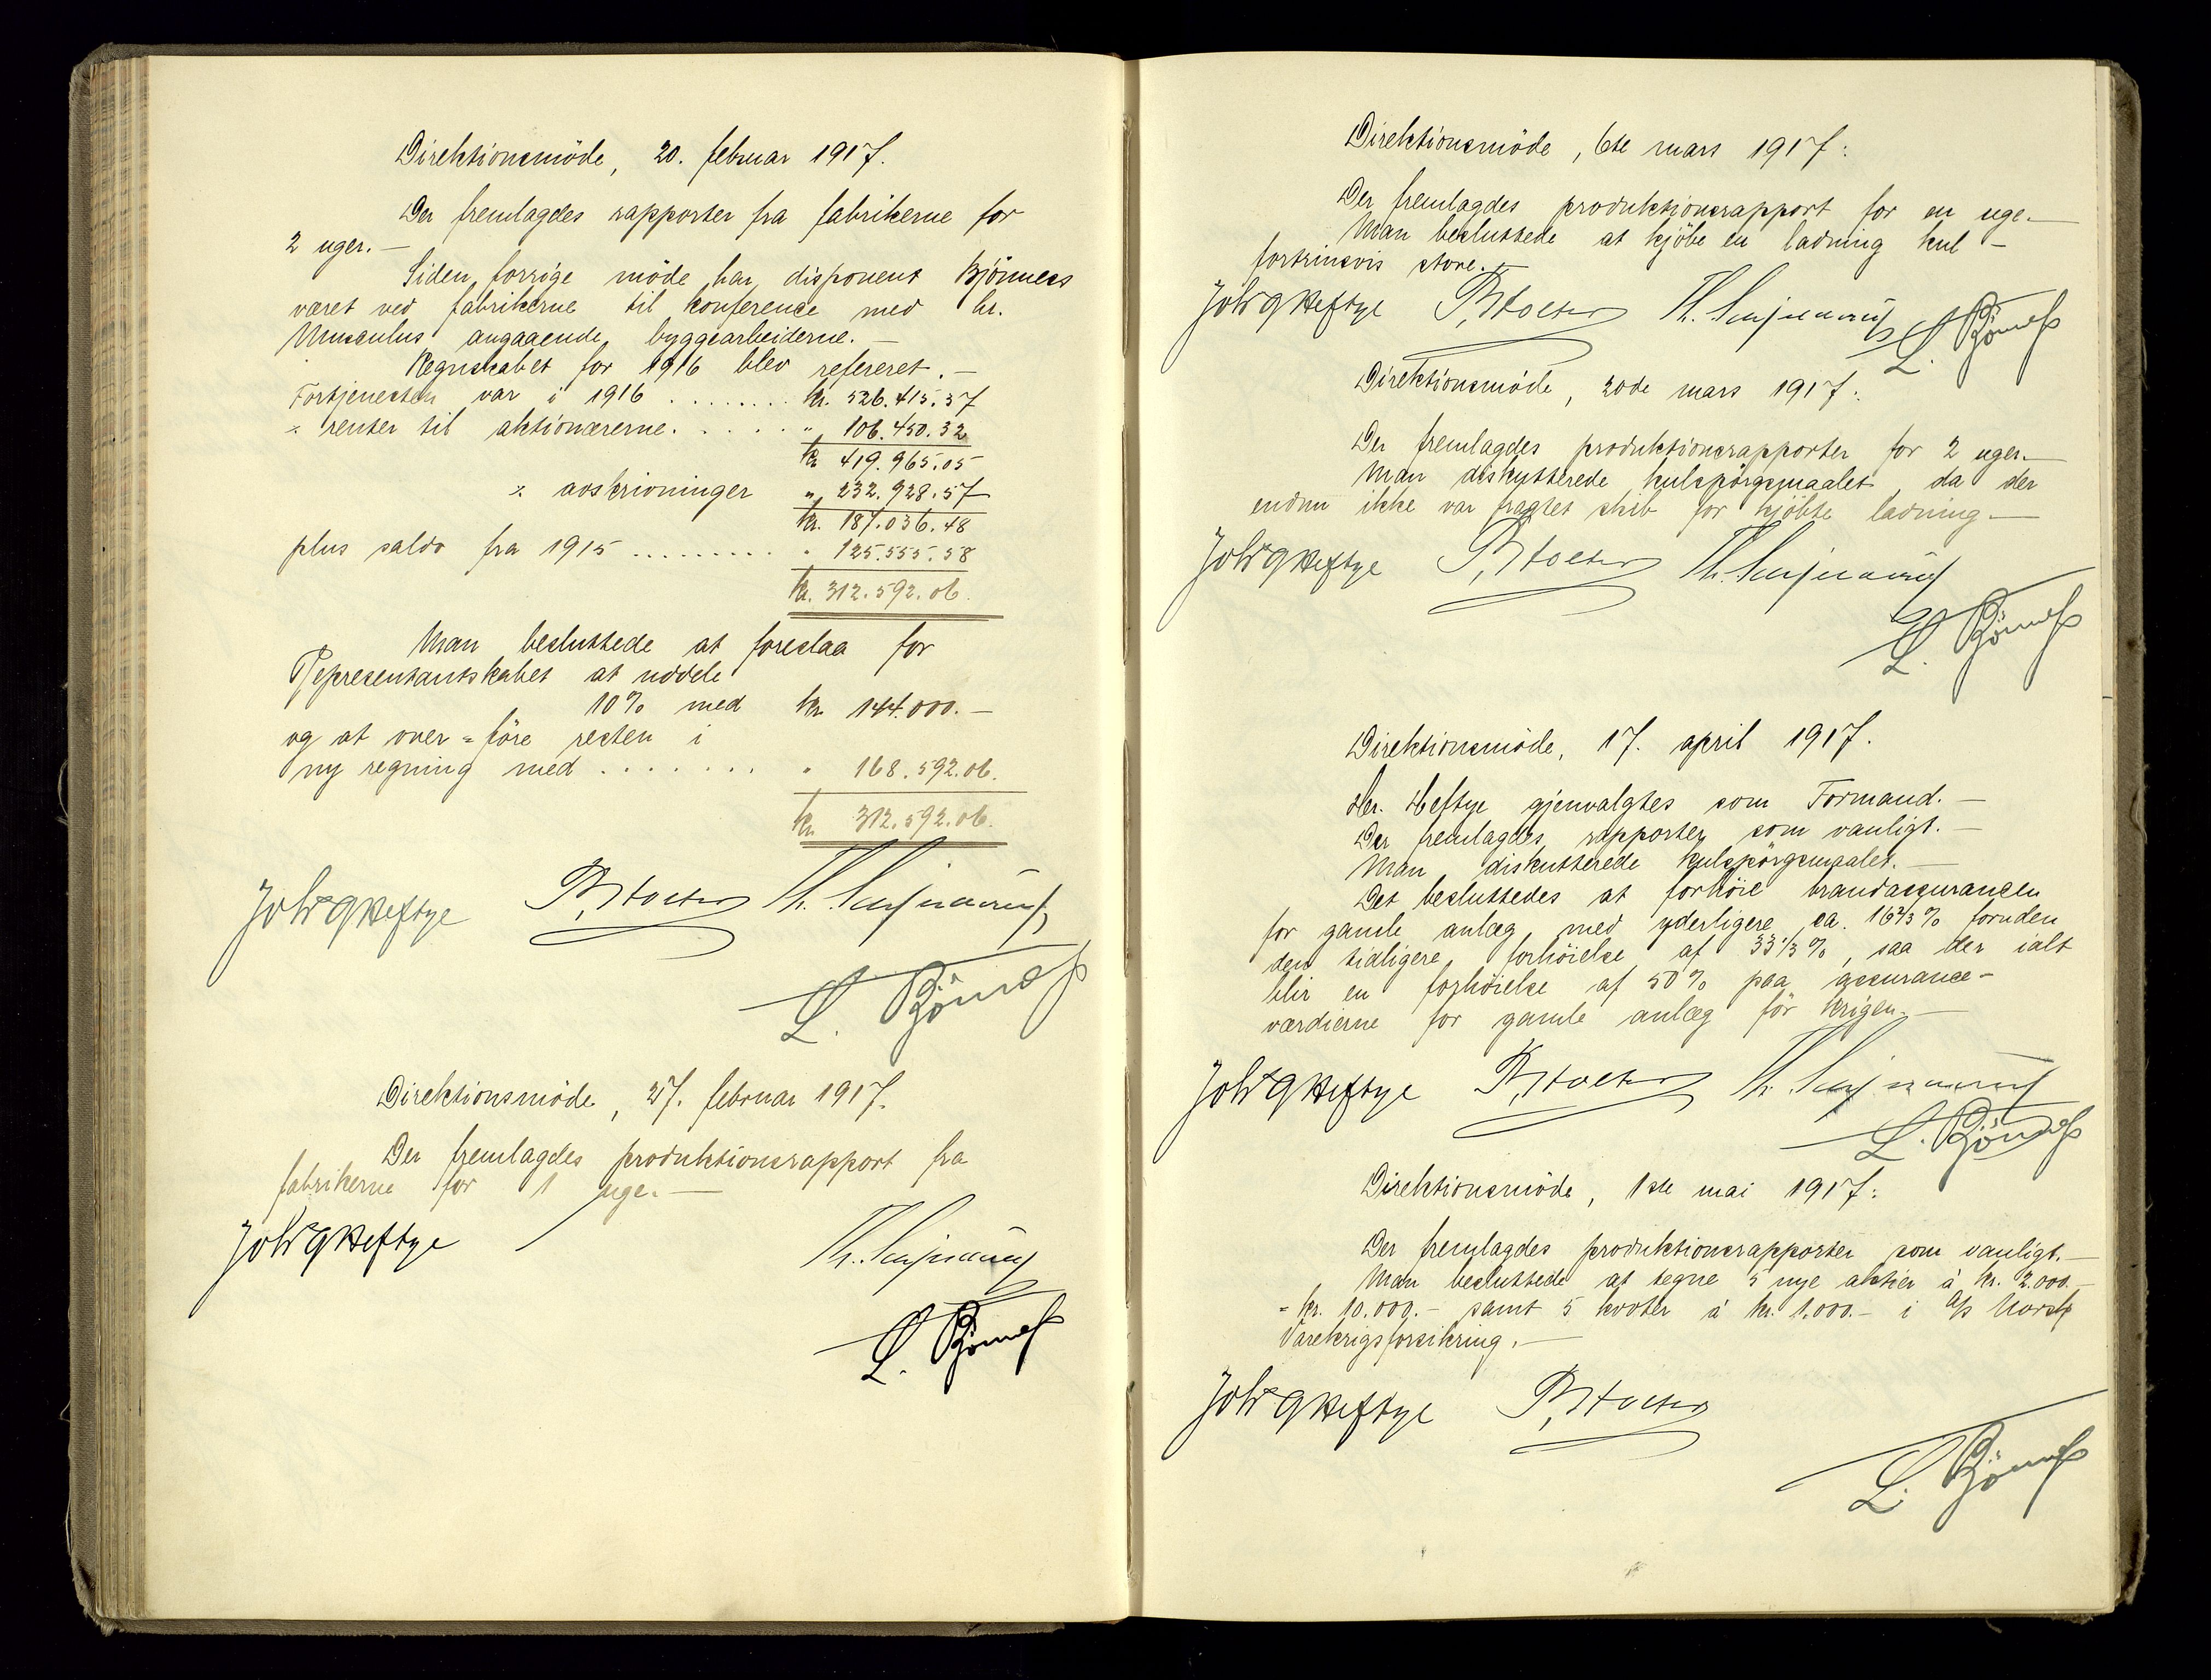 Direktionsmöde, 20. februar 1917.
Der fremlagdes rapporter fra fabrikerne for
2 uger.—
Siden forrige möde har disponent Björnness
været ved fabrikerne til konference med hr.
Musculus angaaende byggearbeiderne.—
Regnskabet for 1916 blev refereret.—
Fortjenesten var i 1916 ........ kr. 526.415.37
÷ renter til aktionærerne. .... " 106.450.32
kr. 419.965.05
÷ avskrivninger " 232.928.57
kr. 187.036.48
plus saldo fra 1915 ......... " 125.555.58
kr. 312.592.06.
Man besluttede at foreslaa for
Representantskabet at uddele
10% med kr 144.000.—
og at over=före resten i
ny regning med ....... " 168.592.06.
kr. 312.592.06.
Joh G Heftye P. Holter
L. Björness
Direktionsmöde, 27. februar 1917.
Der fremlagdes produktionsrapport fra
fabrikerne for 1 uge.—
Joh G Heftye
L. Björness
Direktionsmöde, 6te mars 1917:
Der fremlagdes produktionsrapport for en uge.—
Man besluttede at kjöbe en ladning kul —
fortrinsvis store.—
Joh G Heftye P. Holter
L. Björness
Direktionsmöde, 20de mars 1917:
Der fremlagdes produktionsrapporter for 2 uger.—
Man diskutterede kulspörgsmaalet, da der
endnu ikke var fragtet skib for kjöbte ladning.—
Joh G Heftye P. Holter
L. Björness
Direktionsmöde, 17. april 1917.
Hr. Heftye gjenvalgtes som Formand.—
Der fremlagdes rapporter som vanligt.—
Man diskutterede kulspörgsmaalet.—
Det besluttedes at forhöie brandassurancen
for gamle anlæg med yderligere ca. 16 2/3 % foruden
den tidligere forhöielse af 33 1/3 %, saa der ialt
blir en forhöielse af 50% paa assurance-
værdierne for gamle anlæg för krigen.—
Joh G Heftye P. Holter
L. Björness
Direktionsmöde, 1ste mai 1917:
Der fremlagdes produktionsrapporter som vanligt.—
Man besluttede at tegne 5 nye aktier à kr. 2.000.—
= kr. 10.000.— samt 5 kvoter à kr. 1.000.— i A/S Norsk
Varekrigsforsikring.—
Joh G Heftye P. Holter
L. Björness